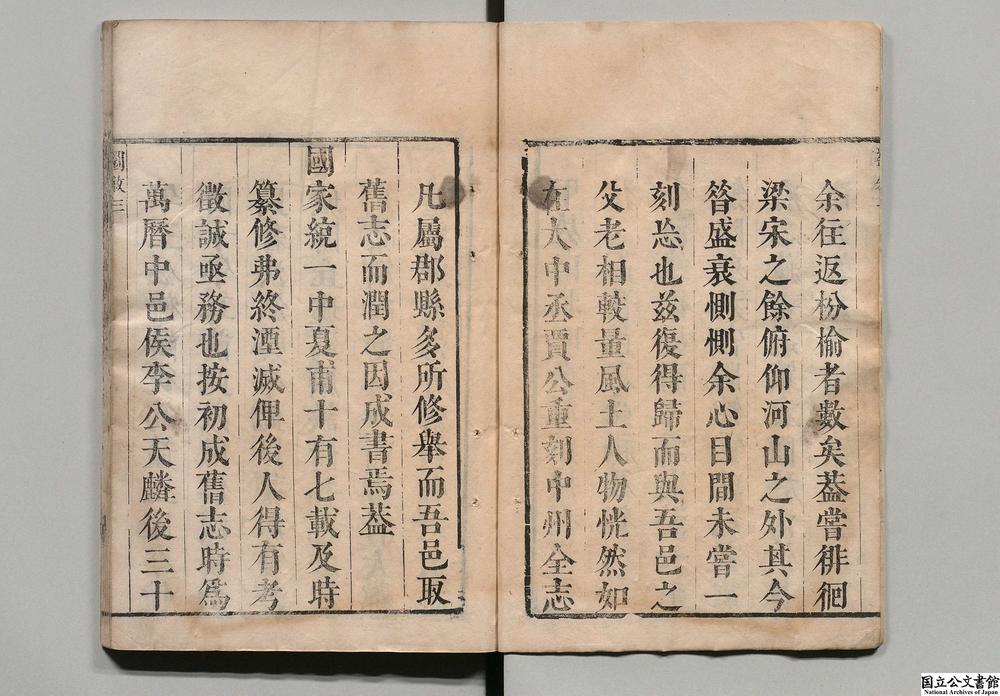 余往返枌榆者數矣葢嘗徘徊
梁宋之餘俯仰河山之外其今
昝盛衰惻惻余心目間未嘗一
刻忘也茲復得歸而與吾邑之
父老相較量風土人物恍然如
在大中丞賈公重刻中州全志
凡屬郡縣多所修舉而吾邑取
舊志而潤之因成書焉葢
國家統一中夏甫十有七載及時
纂修弗終湮滅俾後人得有考
徵誠亟務也按初成舊志時為
萬曆中邑侯李公天麟後三十
國立公文書館
National Archives of Japan